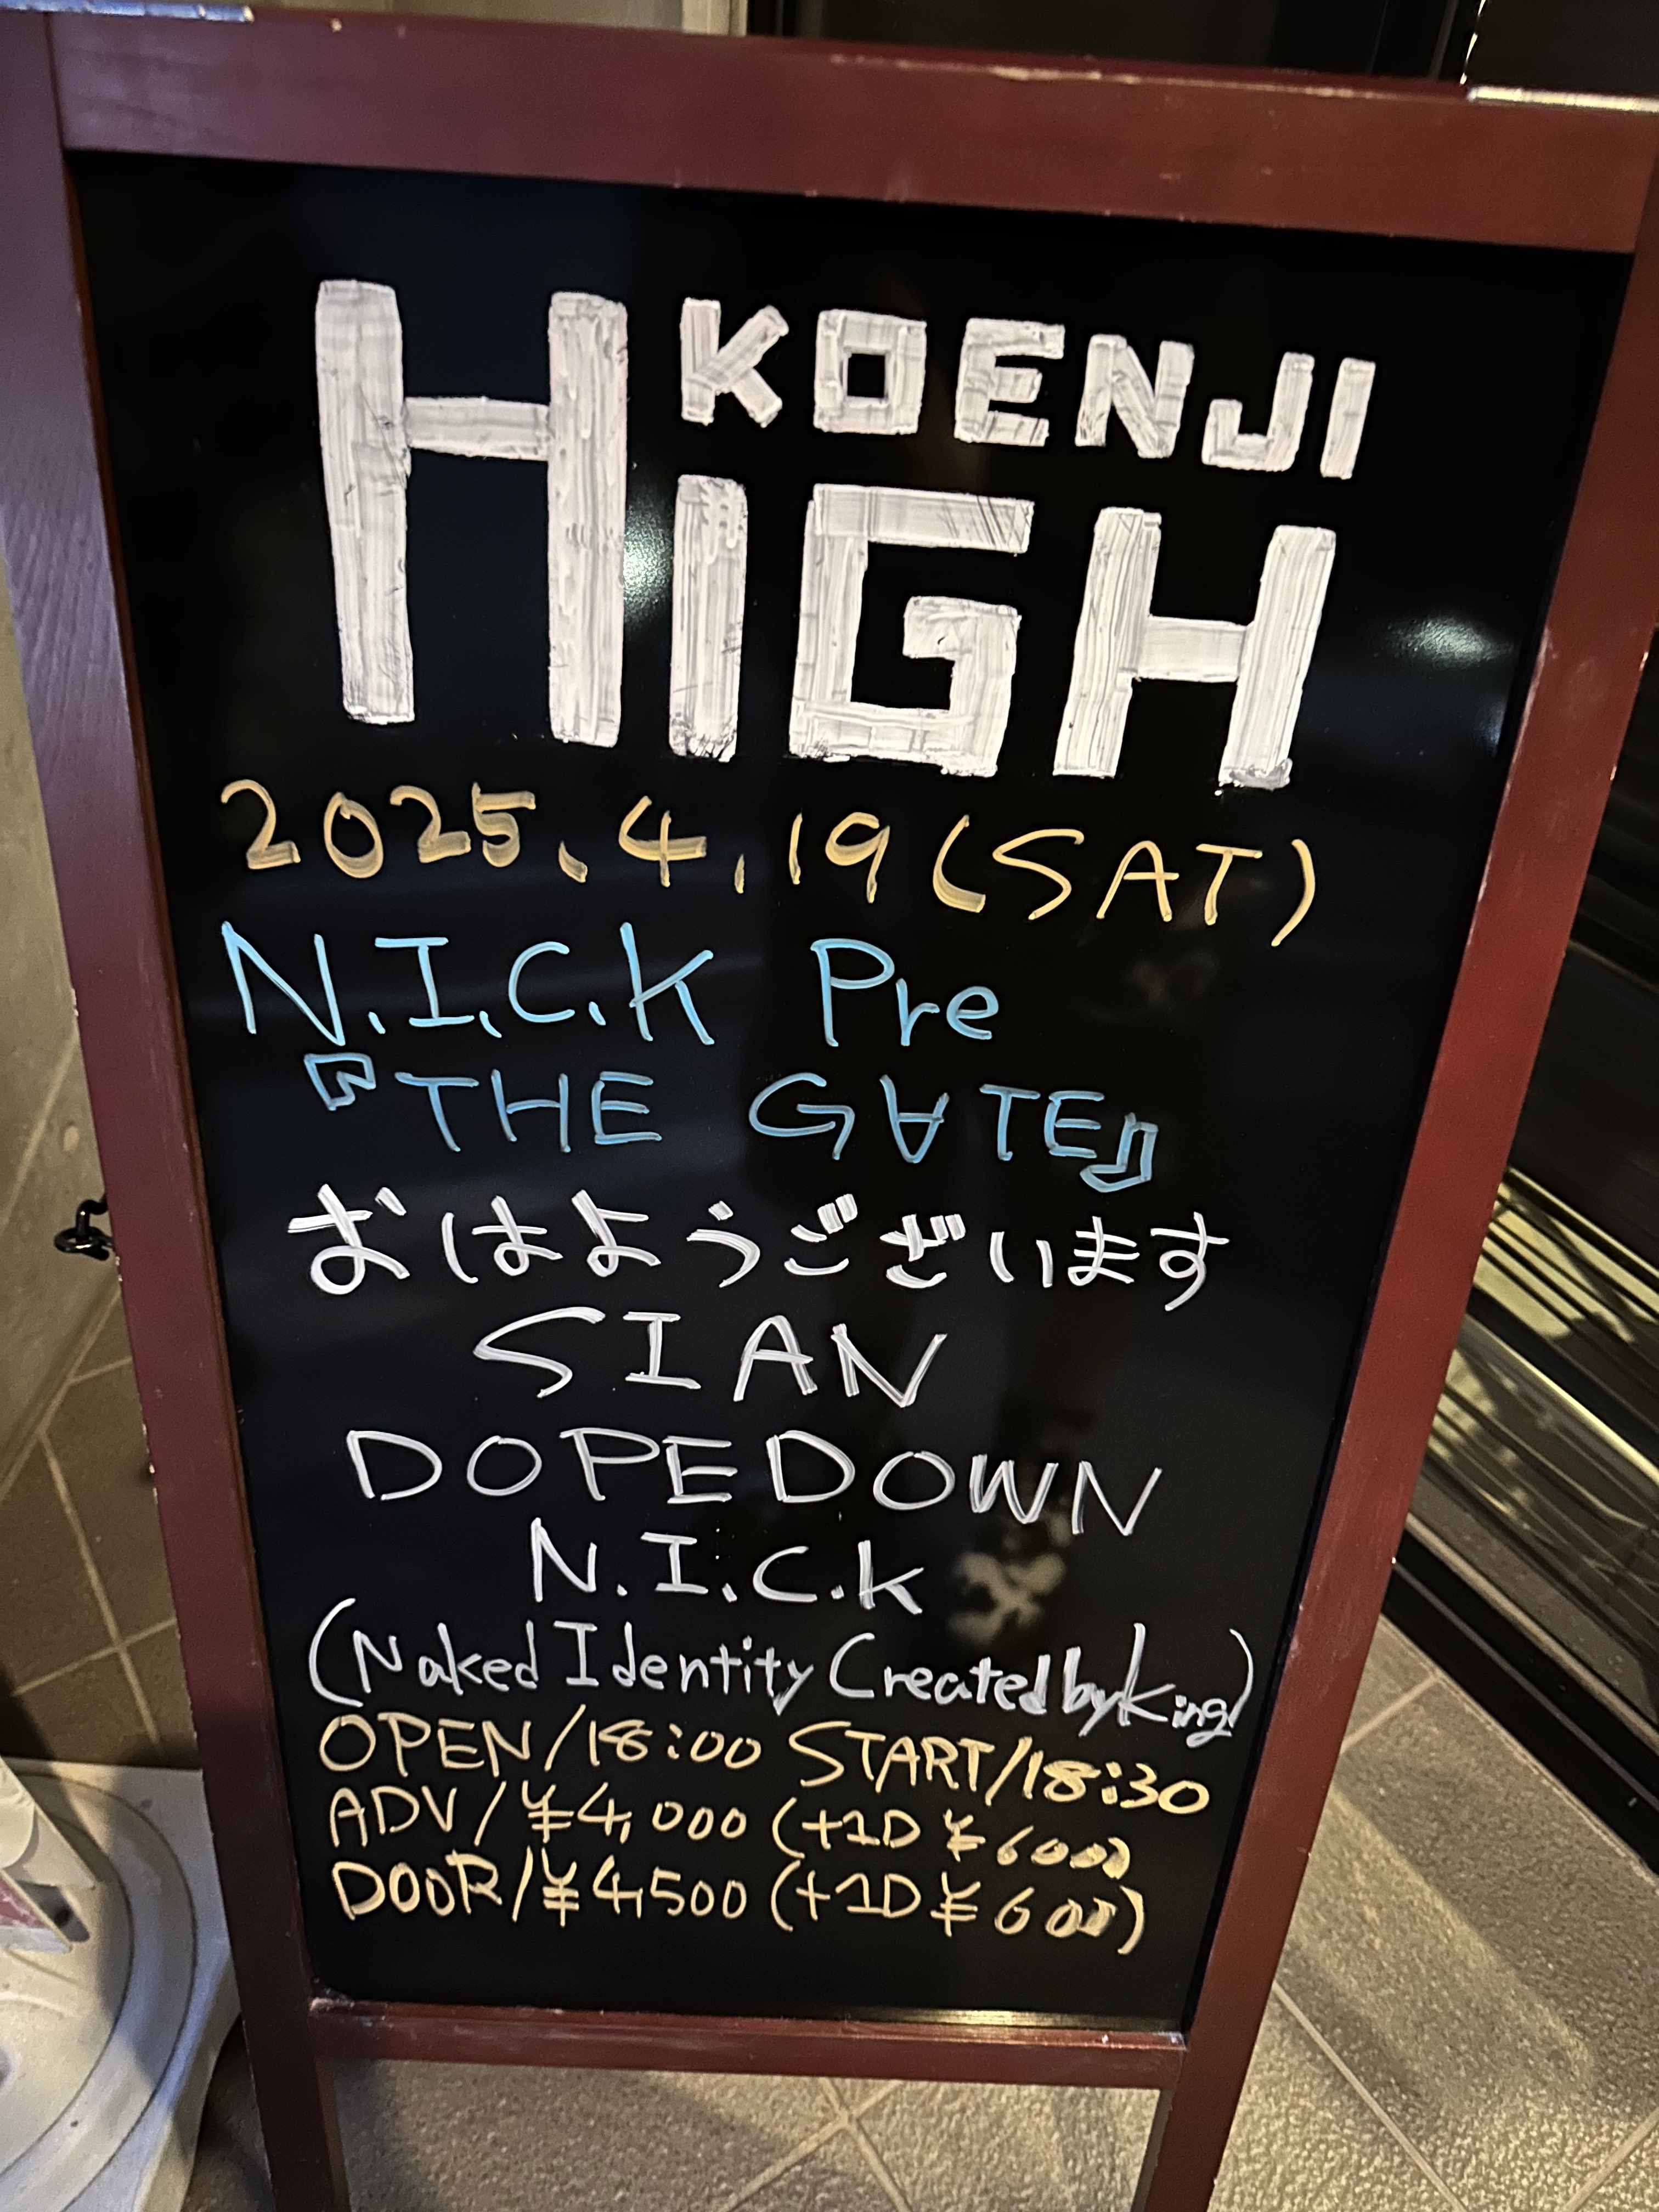 KOENJI
HIGH
2025.4.19(SAT)
N.I.C.K Pre
『THE G∀TE』
おはようございます
SIAN
DOPEDOWN
N.I.C.K
(Naked Identity Created by King)
OPEN/18:00 START/18:30
ADV/¥4,000 (+1D ¥600)
DOOR/¥4,500 (+1D ¥600)